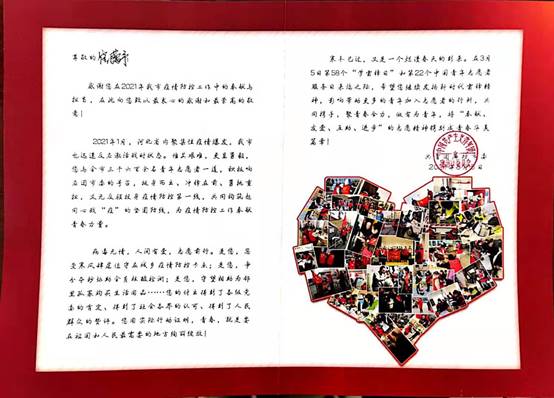 尊敬的
感谢您在2021年我市疫情防控工作中的奉献与
担当，在此向您致以最衷心的感谢和最崇高的敬
意！
2021年1月，河北省内聚集性疫情爆发，我市
也迅速反应激活战时状态。维艰艰难，更显勇毅，
您与全市三千六百余名青年志愿者一道，积极响
应团市委的号召，挺身而出，冲锋在前，勇挑重
担，义无反顾投身疫情防控第一线，共同构筑起
同心战“疫”的坚固防线，为疫情防控工作奉献
青春力量。
病毒无情，人间有爱，志愿前行。是您，忍
受寒风肆虐值守在城乡疫情防控卡点；是您，争
分夺秒协助全员核酸检测；是您，守望相助为邻
里孤寡购买生活用品……您的付出得到了各级党
委的肯定、得到了社会各界的认可、得到了人民
群众的赞许。您用实际行动证明，青春，就是要
在祖国和人民最需要的地方绚丽绽放！
寒冬已过，又是一个短道春天的到来。在3月
5日第58个“学雷锋日”和第22个中国青年志愿者
服务日来临之际，希望您继续发扬新时代雷锋精
神，影响带动更多的青年加入志愿者的行列，共
同携手，聚青春合力，做有为青年，将“奉献、
友爱、互助、进步”的志愿精神谱刻成青春华美
篇章！